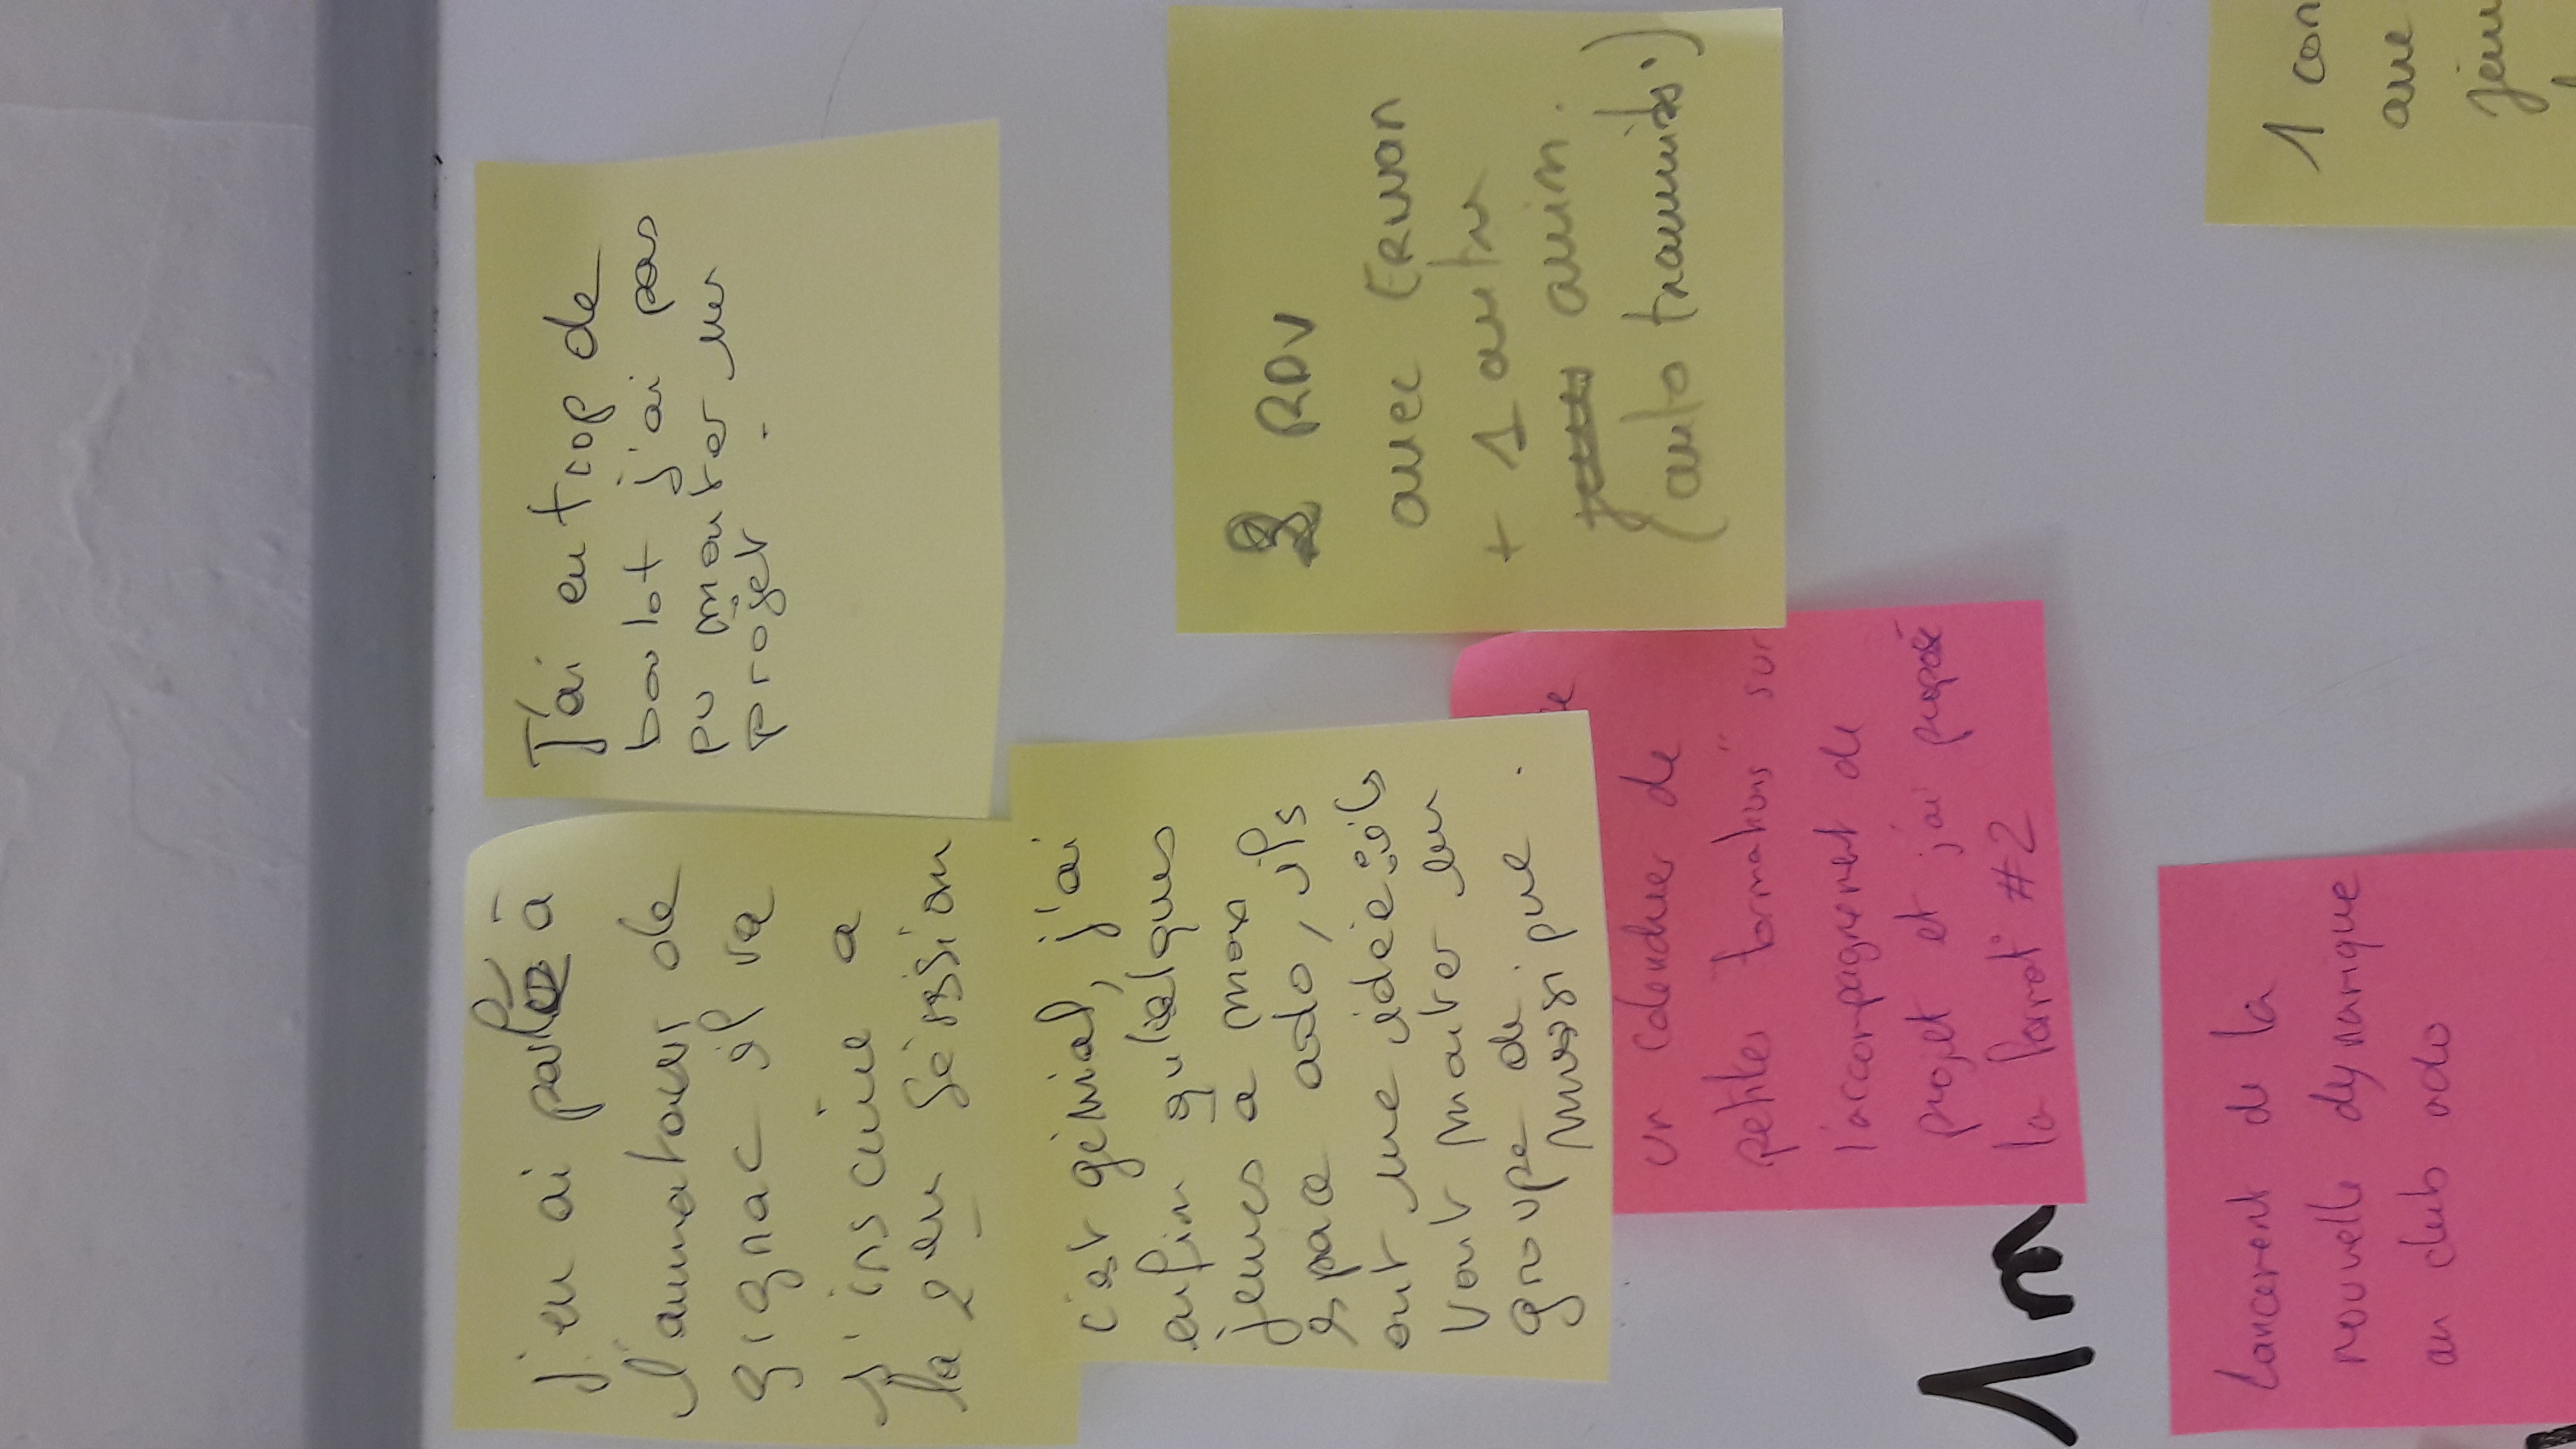 j'en ai parlé à
l'animateur de
gignac il va
s'inscrire a
la 2em séssion
J'ai eu trop de
boulot j'ai pas
pu monter un
projet.
c'est génial, j'ai
enfin quelques
jeunes à mon
espace ado, ils
ont une idée : ils
vont monter un
groupe de
musique.
2 RDV
avec ERWAN
+ 1 autre
anim.
(auto transmiss°)
un calendrier de
petites "formations" sur
l'accompagnement de
projet et j'ai proposé
la format° #2
1m
Lancement de la
nouvelle dynamique
au club ado
1 con
ave
jeu